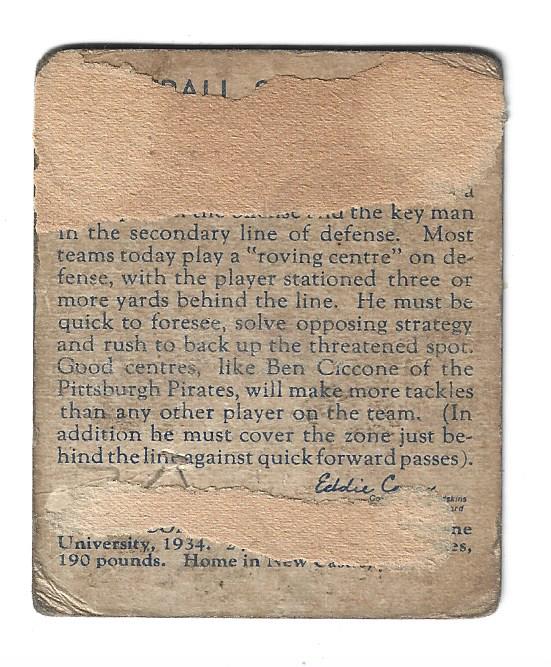 the key man
in the secondary line of defense. Most
teams today play a "roving centre" on de-
fense, with the player stationed three or
more yards behind the line. He must be
quick to foresee, solve opposing strategy
and rush to back up the threatened spot.
Good centres, like Ben Ciccone of the
Pittsburgh Pirates, will make more tackles
than any other player on the team. (In
addition he must cover the zone just be-
hind the line against quick forward passes).
Eddie
University, 1934.
190 pounds. Home in New